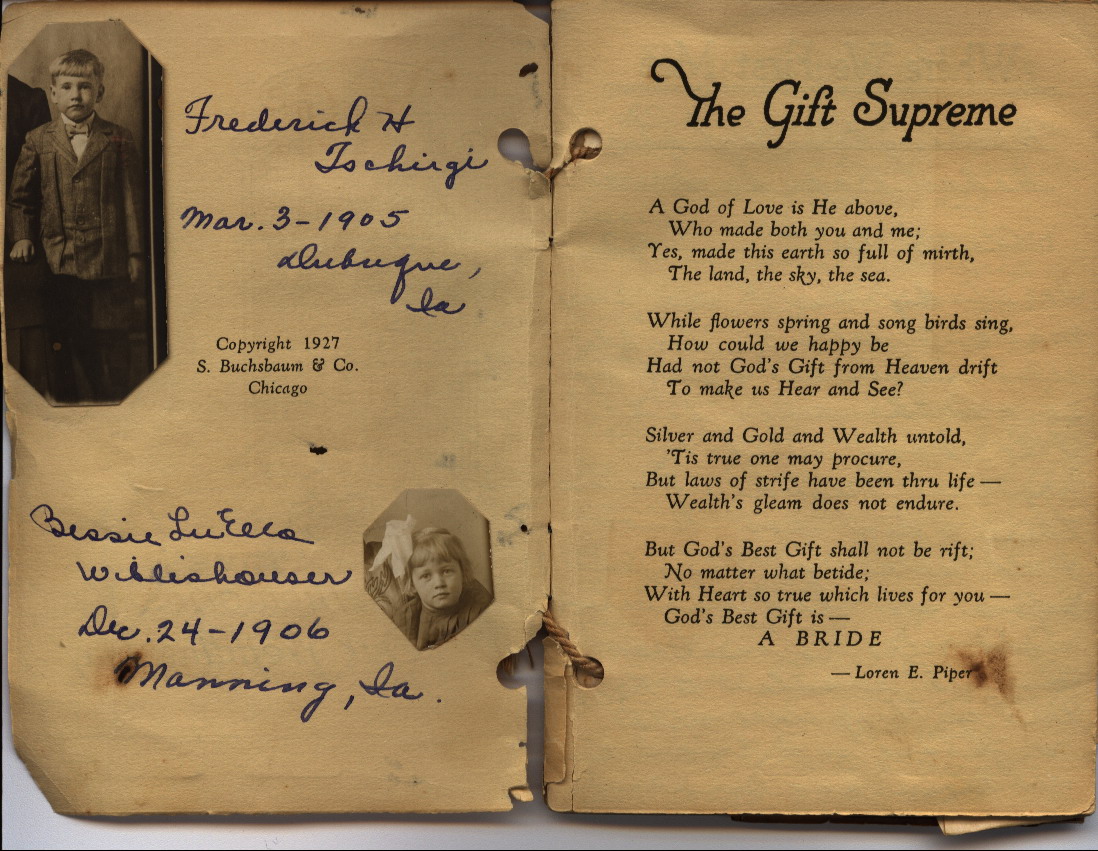 Frederick H
Tschirgi
Mar. 3-1905
Dubuque,
Ia
Copyright 1927
S. Buchsbaum & Co.
Chicago
Bessie LuElla
Dec. 24-1906
Manning, Ia.
The Gift Supreme
A God of Love is He above,
Who made both you and me;
Yes, made this earth so full of mirth,
The land, the sky, the sea.
While flowers spring and song birds sing,
How could we happy be
Had not God's Gift from Heaven drift
To make us Hear and See?
Silver and Gold and Wealth untold,
'Tis true one may procure,
But laws of strife have been thru life —
Wealth's gleam does not endure.
But God's Best Gift shall not be rift;
No matter what betide;
With Heart so true which lives for you —
God's Best Gift is —
A BRIDE
— Loren E. Piper